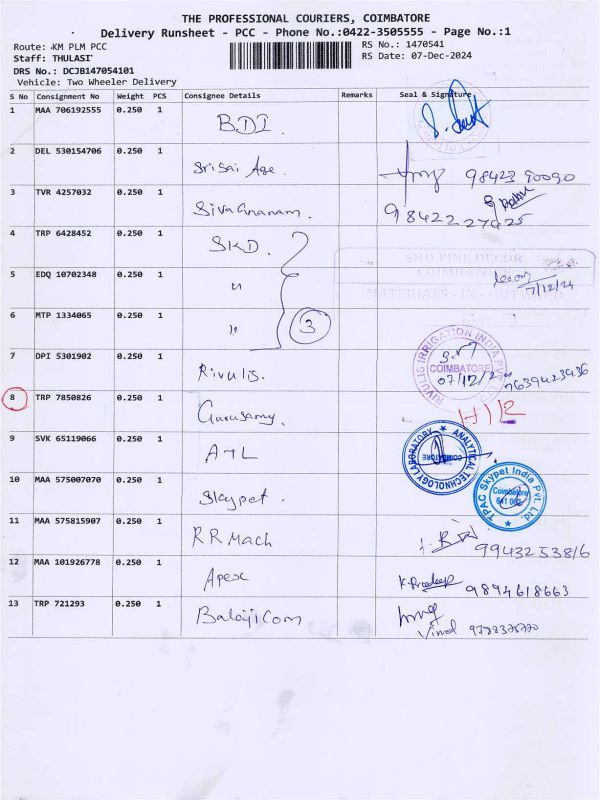 THE PROFESSIONAL COURIERS, COIMBATORE
Delivery Runsheet - PCC - Phone No.:0422-3505555 - Page No.:1
Route: KM PLM PCC
RS No.: 1470541
Staff: THULASI
RS Date: 07-Dec-2024
DRS No.: DCJB147054101
Vehicle: Two Wheeler Delivery
S No Consignment No Weight PCS Consignee Details Remarks Seal & Signature
1 MAA 706192555 0.250 1 BDI.
2 DEL 530154706 0.250 1 Srisai Age. 98423 90090
3 TVR 4257032 0.250 1 Sivagnanam. 9842227425
4 TRP 6428452 0.250 1 SKD.
SKD FINE DECOR
COIMBATORE
5 EDQ 10702348 0.250 1 " 7/12/24
MATERIALS IN - OUTWARD
6 MTP 1334065 0.250 1 " 3
7 DPI 5301902 0.250 1 Rivulis. 7639423936
RIVULIS IRRIGATION INDIA PVT. LTD
COIMBATORE
07/12/24
8 TRP 7850826 0.250 1 Gurusamy.
9 SVK 65119066 0.250 1 ATL
ANALYTICAL TECHNOLOGY LABORATORY
COIMBATORE
10 MAA 575007070 0.250 1 Skypet.
TPAC Skypet India Pvt. Ltd.
Coimbatore
641 062
11 MAA 575815907 0.250 1 RR Mach 9943253816
12 MAA 101926778 0.250 1 Apex K. Pradeep 9894618663
13 TRP 721293 0.250 1 Balaji Com
Vimal